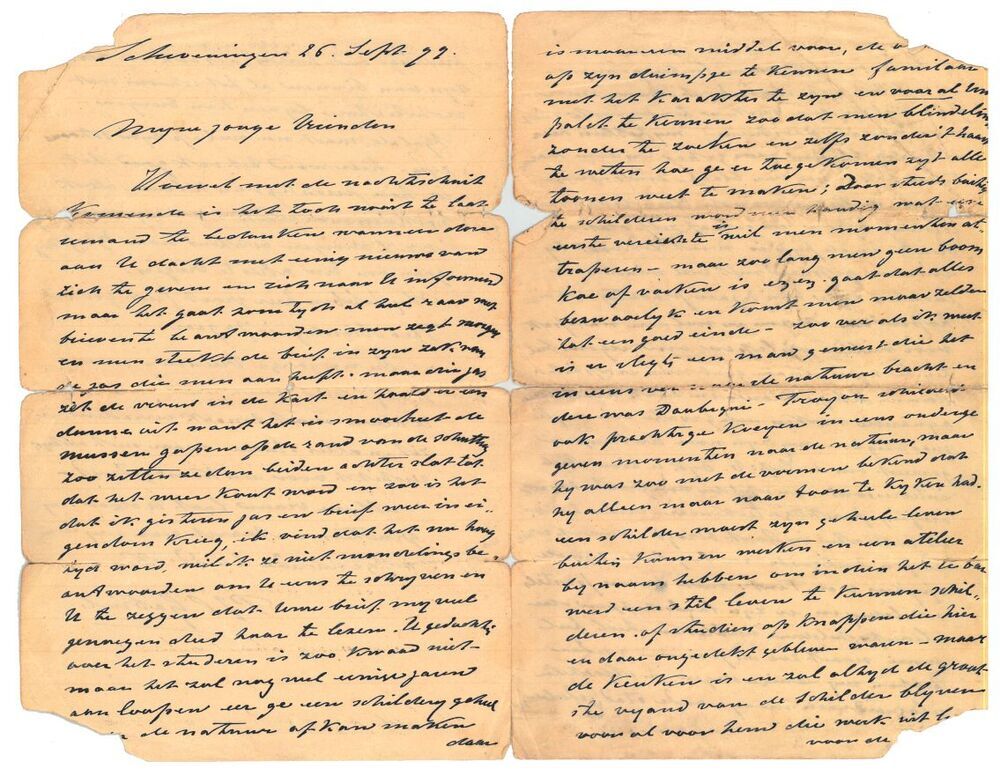 Scheveningen 26 Sept 99.
Myne jonge Vrienden
Hoewel met de nachtschuit
komende is het toch nooit te laat
iemand te bedanken wanneer deze
aan U dacht met eenig nieuws van
zich te geven en zich naar U informeerd
maar het gaat zomtyds al heel raar met
brieven te beantwoorden men zegt morgen
en men steekt de brief in zyn zak van
de jas die men aan heeft. maar die jas
zet de vrouw in de kast en haald er een
dunne uit want het is smoorheet de
mussen gapen op de rand van de schutting
zoo zitten ze dan beiden achter slot tot
dat het weer koud word en zoo is het
dat ik gisteren jas en brief weer in ei-
gendom kreeg, ik vind dat het nu hoog
tyd word, wil ik ze niet mondelings be
antwoorden om U eens te schryven en
U te zeggen dat Uwe brief my veel
genoegen deed haar te lezen. U gedachte
over het studeren is zoo kwaad niet-
maar het zal nog wel eenige jaren
aanloopen eer ge een schildery geheel
de natuur af kan maken
daar
is maar een middel voor, de
op zyn duimpje te kennen familaar
met het karakter te zyn en vooral Un
palet te kennen zoo dat men blindelin
zonder te zoeken en zelfs zonder 't haast
te weten hoe ge er toe gekomen zyt alle
toonen weet te maken; Door steeds buiten
te schilderen word men handig wat een
eerste vereischte is wil men momenten at-
traperen - maar zoo lang men geen boom
koe of varken is eigen gaat dat alles
bezwaarlyk en komt men maar zelden
tot een goed einde - zoo ver als ik weet
is er slegts een man geweest die het
in eens van de natuur bracht en
deze was Daubigni - Troyon schilderde
ook prachtige koeyen in eens onderge
geven momenten naar de natuur, maar
hy was zoo met de vormen bekend dat
hy alleen maar naar toon te kyken had.
een schilder moest zyn geheele leven
buiten kunnen werken en een atelier
by naam hebben om indien het te bar
werd een stil leven te kunnen schil-
deren of studien op knappen die hier
en daar ongedekt gebleven waren - maar
de keuken is en zal altyd de groot
ste vyand van de schilder blyven
vooral voor hem die werk wil
voor de